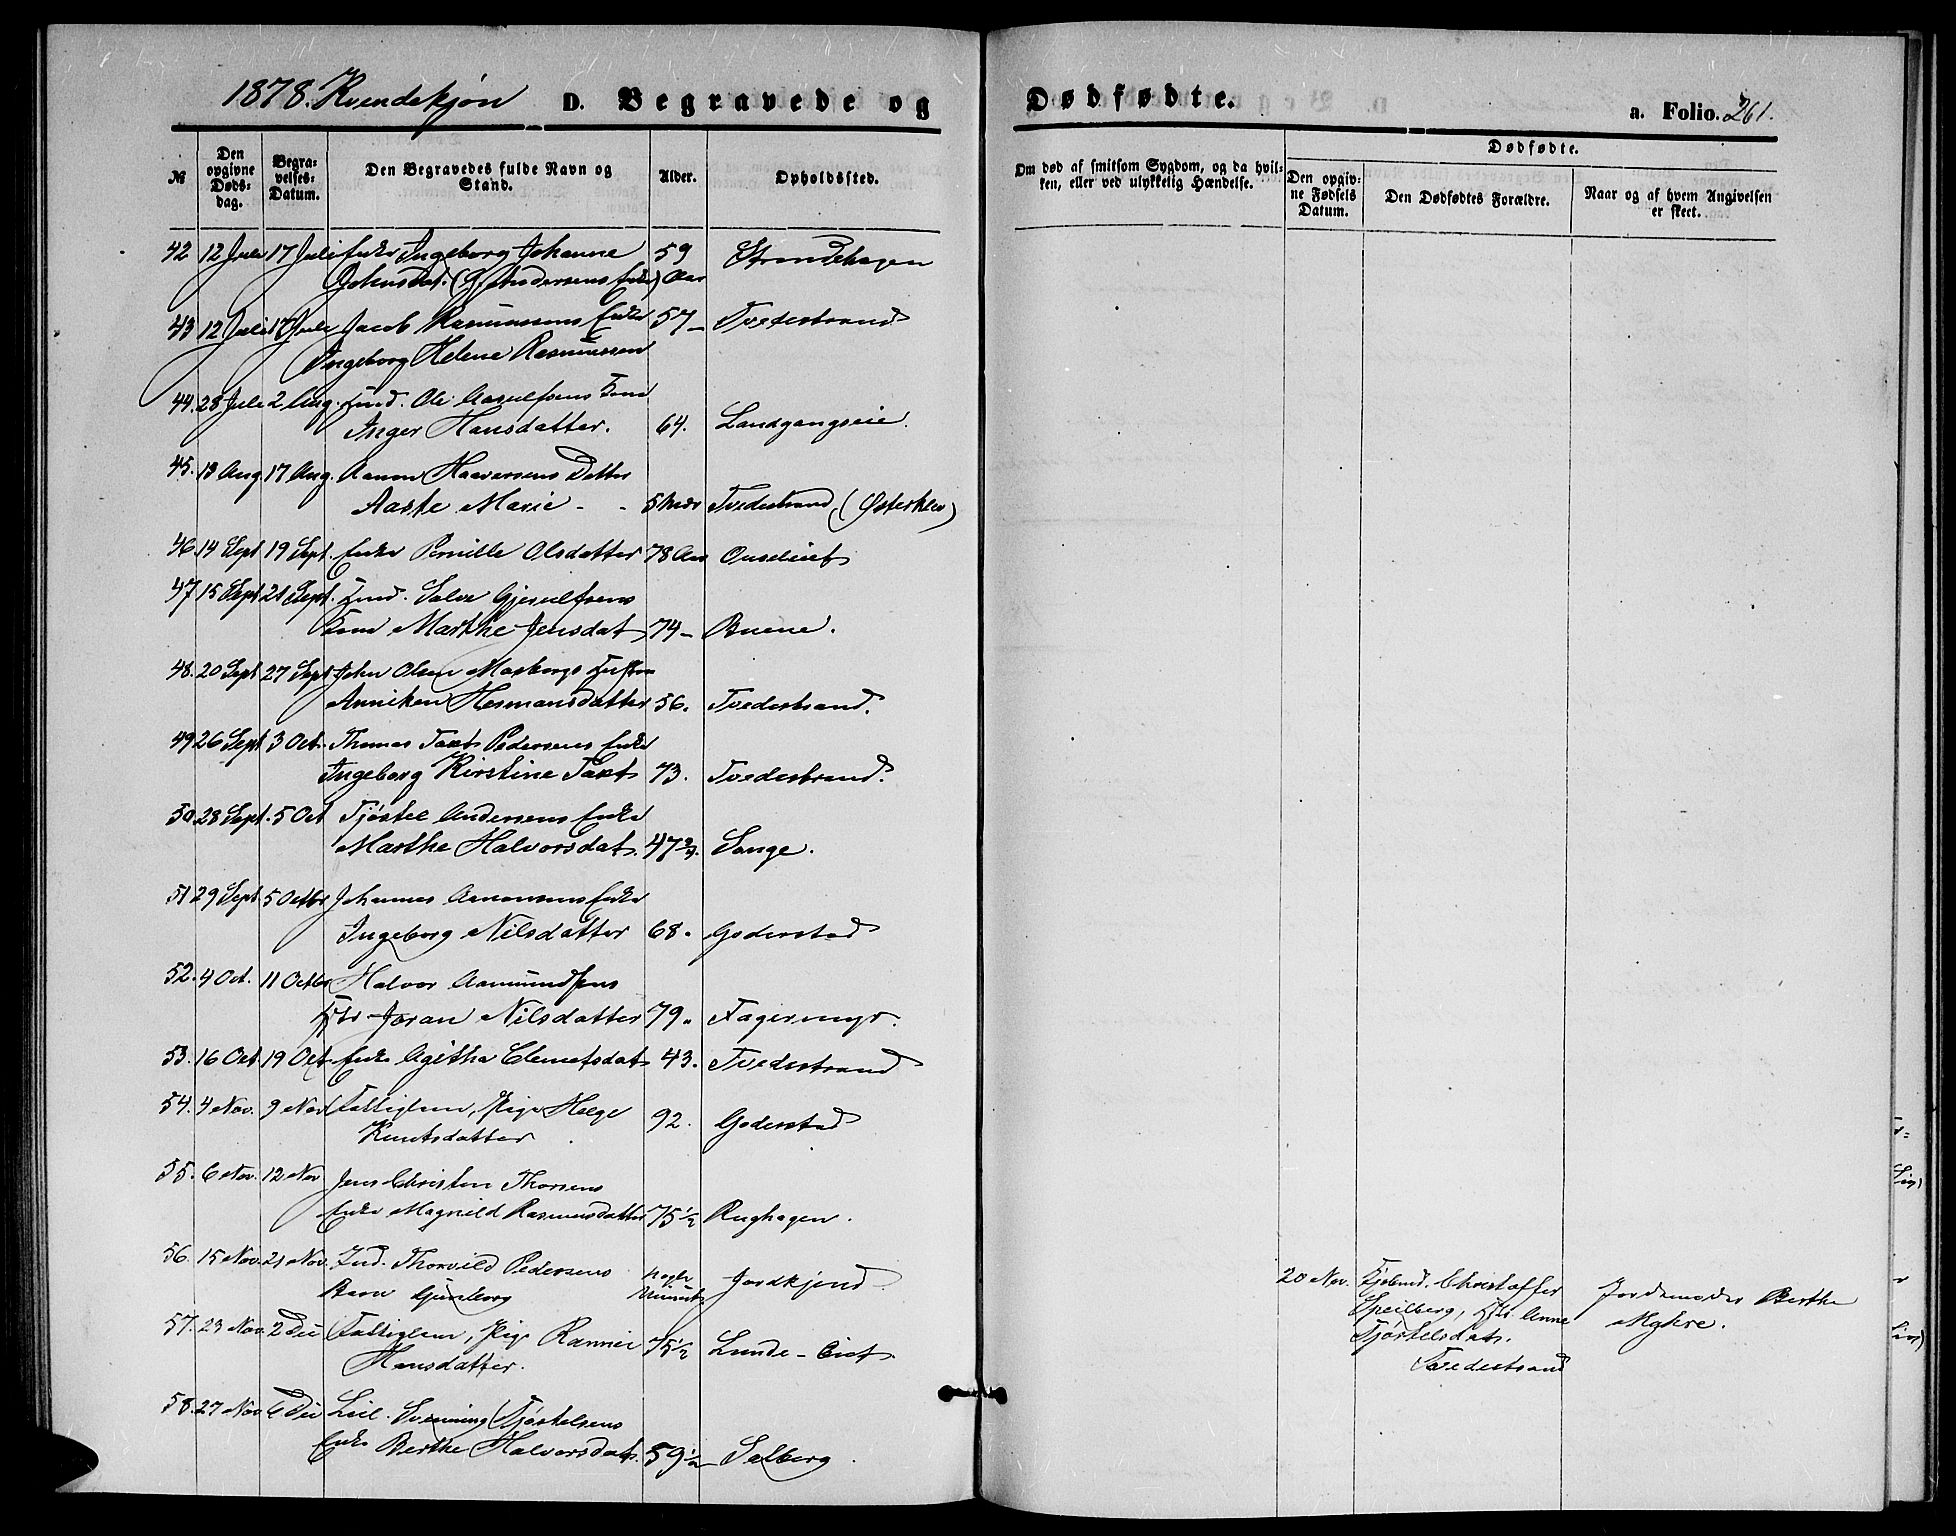 1878. Kvindekjøn D. Begravede og Dødfødte. a. Folio. 261.
№ Den opgivne Døds-dag. Begra-velses-Datum. Den Begravedes fulde Navn og Stand. Alder. Opholdssted.
Om død af smitsom Sygdom, og da hvil-ken, eller ved ulykkelig Hændelse. Dødfødte. Den opgiv-ne Fødsels Datum. Den Dødfødtes Forældre. Naar og af hvem Angivelsen er skeet.
42 12 Juli 17 Juli Enke Ingeborg Johanne 59 Strandehagen
Johnsdat. (G. Andersens Enke) Aar
43 12 Juli 17 Juli Jacob Rasmussens Enke 57 - Tvedestrand
Ingeborg Helene Rasmussen
44. 28 Juli 2 Aug. Ind. Ole Aasulfsens Kone
Inger Hansdatter. 64. Landgangseie.
45. 13 Aug 17 Aug. Aanon Haaversens Datter
Aaste Marie - - 5 Mdr Tvedestrand, (Østerklev)
46. 14 Sept 19 Sept. Enke Pernille Olsdatter 78 Aar Ouseliet
47 15 Sept 21 Sept. Ind. Salve Gjeruldsens
Kone Marthe Jensdat 74 - Buene.
48. 20 Sept 27 Sept John Olsen Mosbergs Hustru
Anniken Hermansdatter 56. Tvedestrand.
49 26 Sept 3 Oct. Thomas Taxt Pedersens Enke
Ingeborg Kirstine Taxt 73. Tvedestrand.
50. 28 Sept. 5 Oct Tjøstel Andersens Enke
Marthe Halvorsdat. 47 Songe.
51 29 Sept 5 Octbr Johannes Aanonsens Enke
Ingeborg Nilsdatter 68. Goderstad
52. 4 Oct. 11 Octbr Halvor Aamundsens
Hstr Joran Nilsdatter 79. Fagermyr.
53. 16 Oct. 19 Oct. Enke Agitha Clemetsdat 43. Tvedestrand
54. 4 Nov. 9 Nov Fattiglem, Pige Helge 92. Goderstad
Knutsdatter
55. 6 Nov. 12 Nov Jens Christen Thorsens
Enke Magnild Rasmusdatter 75 1/2 Rughagen.
56. 15 Nov. 21 Nov. Ind. Thorvild Pedersens Nogle Jordkjend
Barn Gunborg Minuter
57. 23 Nov. 2 Dec Fattiglem, Pige Rannei 75 1/2 Lunde-Eiet
Hansdatter.
58. 27 Nov 6 Dec Leil. Svenning Tjøstelsens
Enke Berthe Halvorsdat. 59 1/2 Salberg.
20 Nov. Christoffer Jordemoder Berthe
Speilberg, Hstr Anne Myhre.
Tjøstelsdat.
Tvedestrand